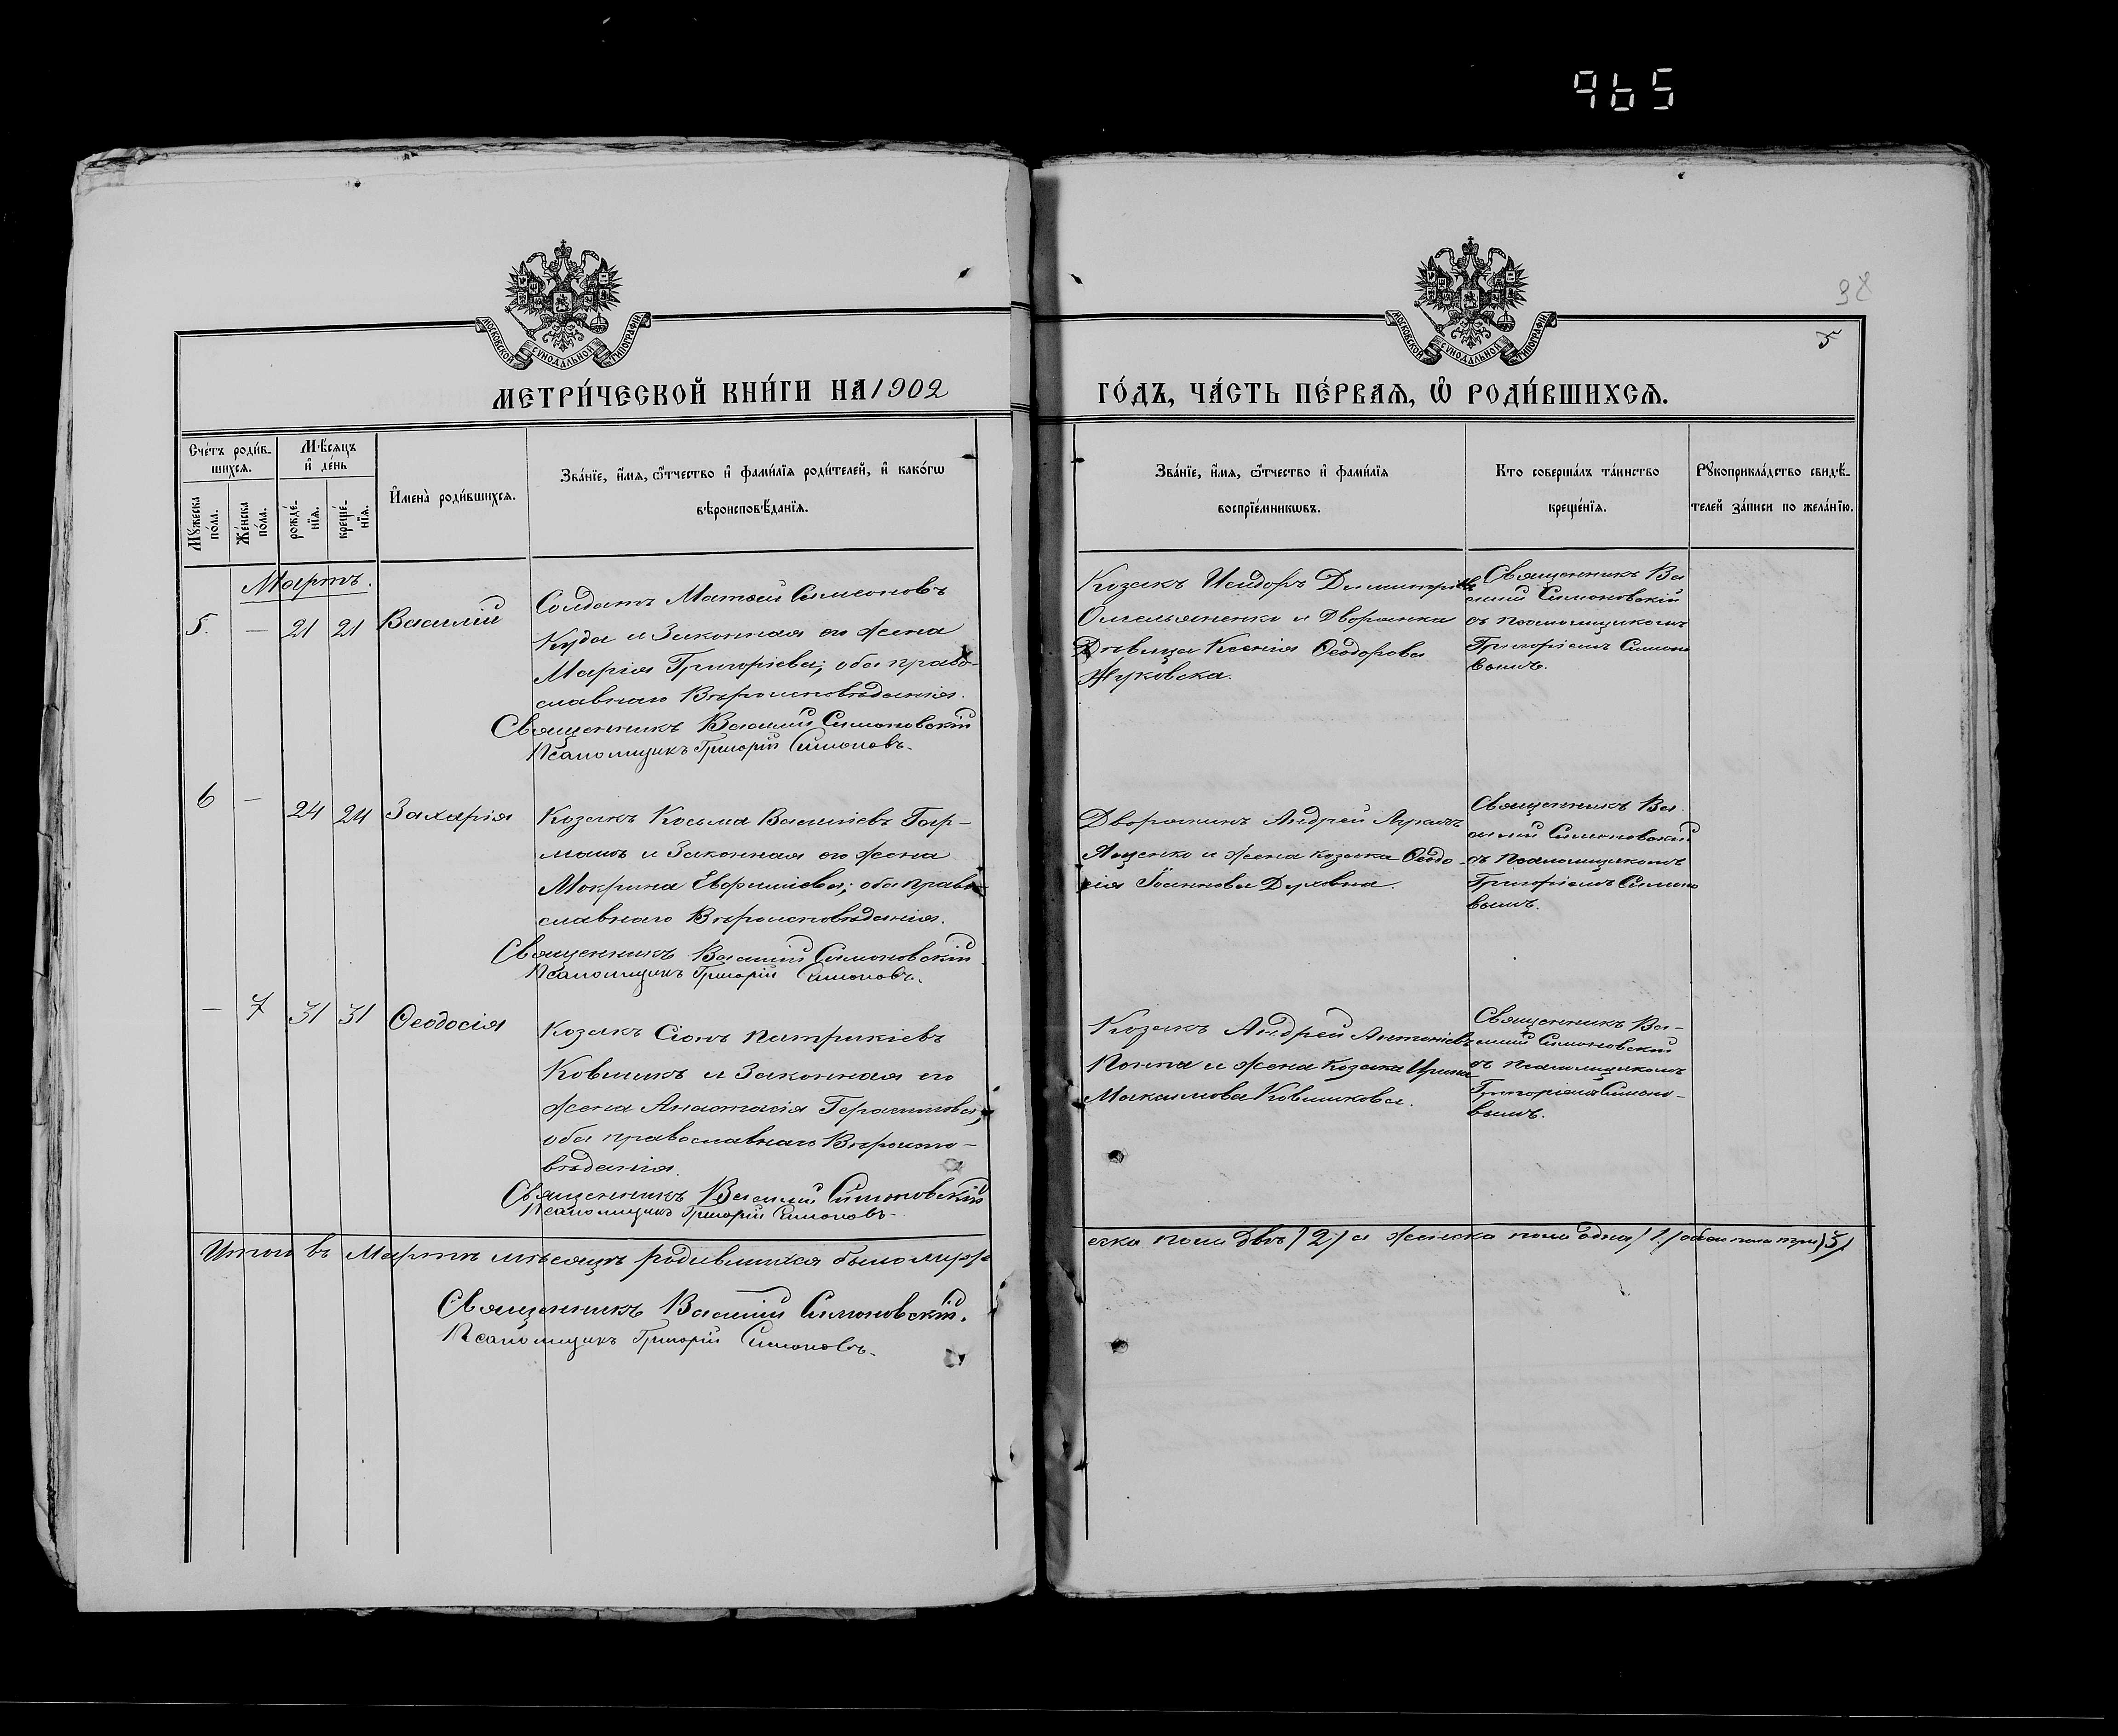 965
38
5
МОСКОВСКОЙ СѴНОДАЛЬНОЙ ТИПОГРАФІИ
МОСКОВСКОЙ СѴНОДАЛЬНОЙ ТИПОГРАФІИ
МЕТРИ́ЧЕСКОЙ КНИ́ГИ НА 1902
ГО́ДЪ, ЧА́СТЬ ПЕ́РВАѦ, Ѽ РОДИ́ВШИХСѦ.
Сче́тъ роди́в-
шихсѧ.
Мꙋжеска
по́ла.
Же́нска
по́ла.
Мѣ́сѧцъ
и҆ де́нь
рожде́-
нїѧ.
креще́-
нїѧ.
И҆мена̀ роди́вшихсѧ.
Зва́нїе, и҆́мѧ, ѻ҆́тчество и҆ фами́лїѧ роди́телей, и҆ како́гѡ
вѣроисповѣ́данїѧ.
Зва́нїе, и҆́мѧ, ѻ҆́тчество и҆ фами́лїѧ
воспрїе́мникѡвъ.
Кто соверша́лъ та́инство
креще́нїѧ.
Рꙋкоприкла́дство свидѣ́-
телей за́писи по жела́нїю.
Мартъ.
5. — 21 21 Василій
Солдатъ Матѳей Симеоновъ
Куда и законная его жена
Марія Григоріева; оба право-
славнаго Вѣроисповѣданія.
Священникъ Василій Симоновскій
Псаломщикъ Григорій Симоновъ.
Козакъ Исидоръ Димитріевъ
Омельяненко и Дворянка
Дѣвица Ксенія Ѳеодорова
Жуковска.
Священникъ Ва
силій Симоновскій
съ псаломщикомъ
Григоріемъ Симоно
вымъ.
6 — 24 24 Захарія
Козакъ Косьма Василіевъ Гар-
машъ и законная его жена
Мокрина Евфиміева; оба право-
славнаго Вѣроисповѣданія.
Священникъ Василій Симоновскій
Псаломщикъ Григорій Симоновъ.
Дворянинъ Андрей Лукичъ
Яценко и жена козака Ѳеодо-
сія Іоаннова Духовна.
Священникъ Ва
силій Симоновскій
съ Псаломщикомъ
Григоріемъ Симоно
вымъ.
— 7 31 31 Ѳеодосія
Козакъ Сіонъ Патрикіевъ
Ковшикъ и законная его
жена Анастасія Герасимова;
оба православнаго Вѣроиспо-
вѣданія.
Священникъ Василій Симоновскій
Псаломщикъ Григорій Симоновъ.
Козакъ Андрей Антоніевъ
Поппа и жена козака Ирина
Максимова Ковшикова.
Священникъ Ва-
силій Симоновскій
съ псаломщикомъ
Григоріемъ Симоно-
вымъ.
Итого въ Мартѣ мѣсяцѣ родившихся было муже
ска пола двѣ /2/ а женска пола одна /1/ обоего пола три /3/
Священникъ Василій Симоновскій.
Псаломщикъ Григорій Симоновъ.